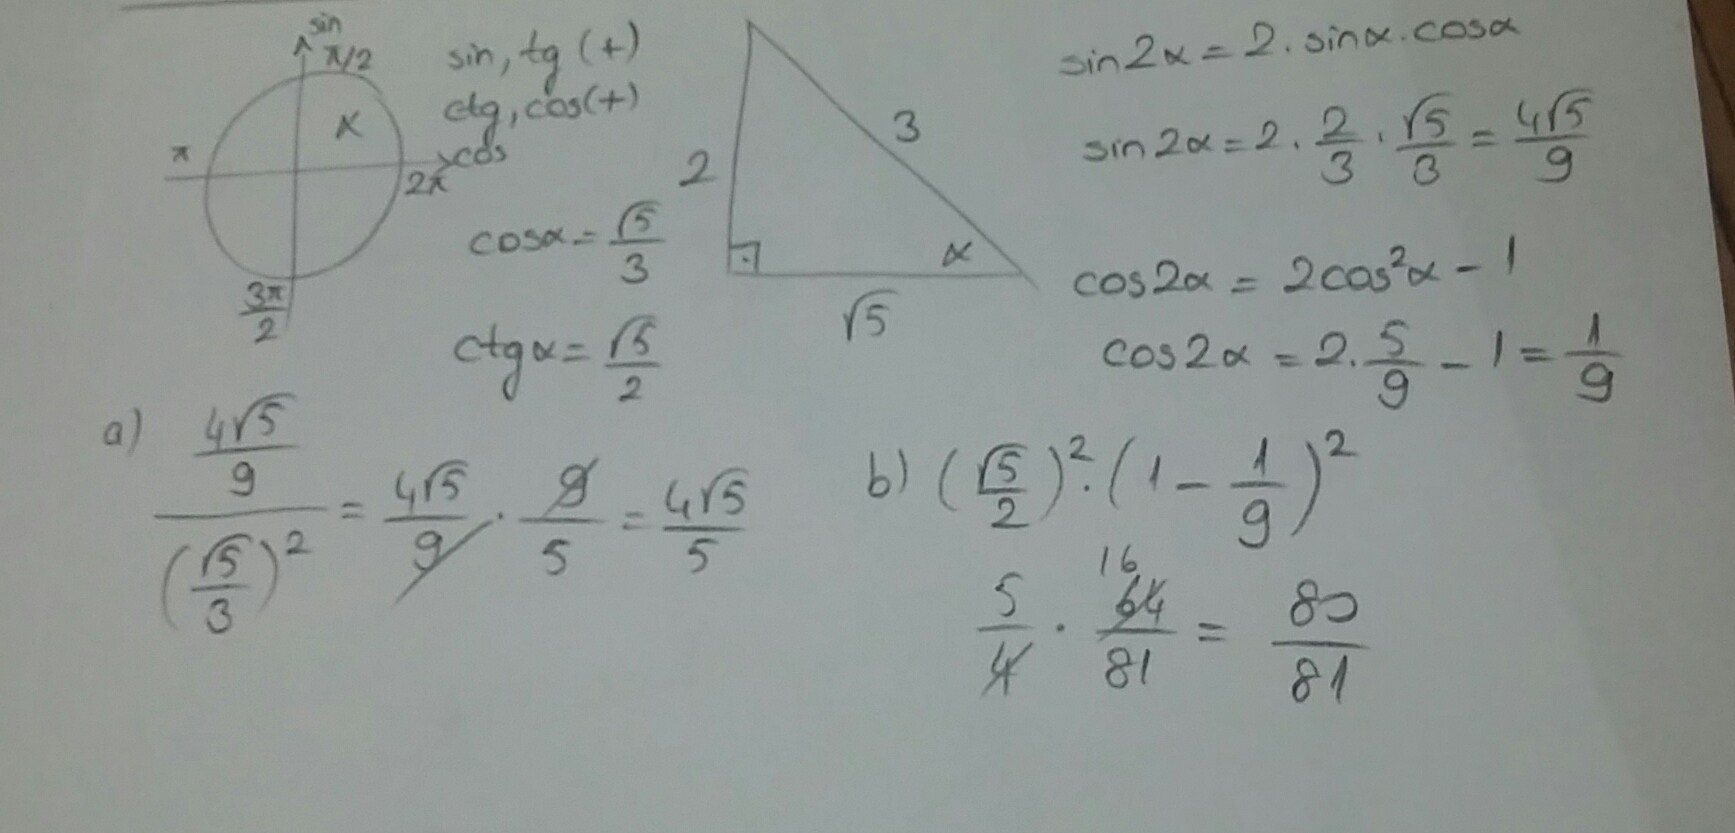 sin
π/2
π
cos
2π
3π/2
sin, tg (+)
ctg, cos(+)
cosα = √5/3
ctgα = √5/2
2
3
α
√5
α
sin2α = 2 . sinα . cosα
sin2α = 2 . 2/3 . √5/3 = 4√5/9
cos2α = 2cos²α - 1
cos2α = 2. 5/9 - 1 = 1/9
a) (4√5/9)/(√5/3)² = 4√5/9 . 9/5 = 4√5/5
b) (√5/2)² . (1 - 1/9)²
16
5/4 . 64/81 = 80/81